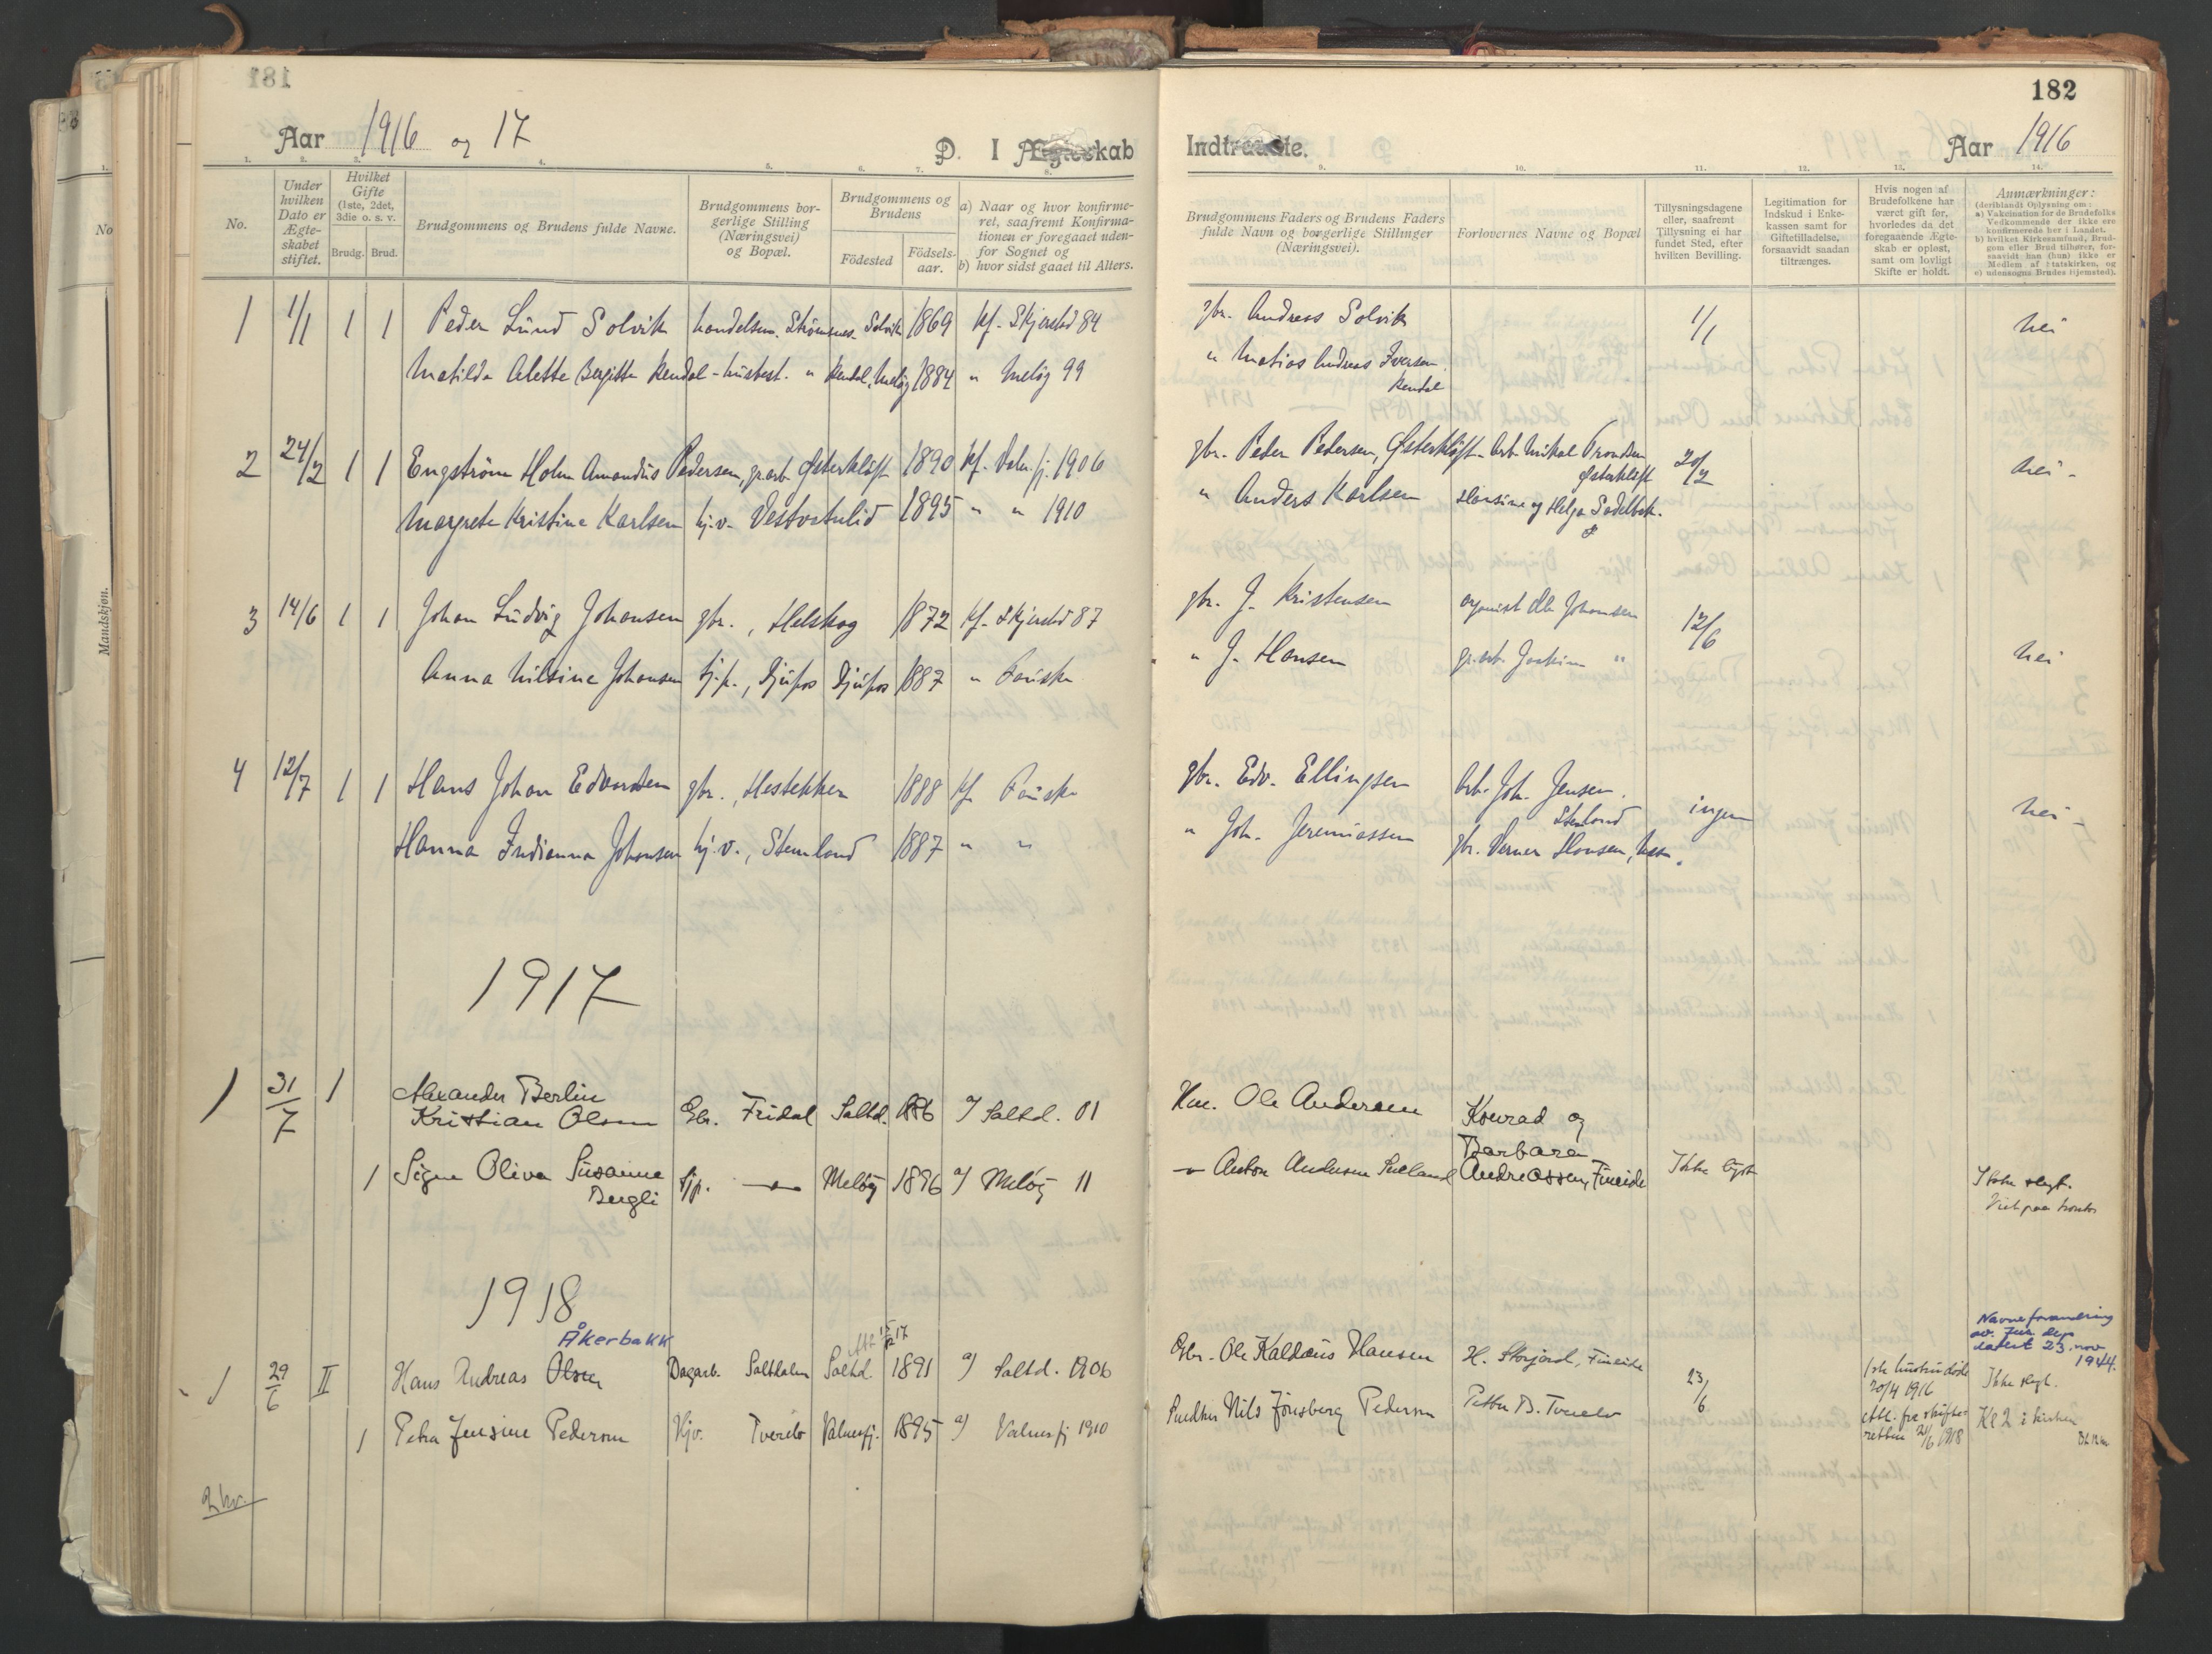 181
Aar 1916 og 17
D. I Ægteskab
1. 2. 3. 4. 5. 6. 7. 8.
No.
Under hvilken Dato er Ægteskabet stiftet.
Hvilket Gifte (1ste, 2det, 3die o. s. v.
Brudg. Brud.
Brudgommens og Brudens fulde Navne.
Brudgommens borgerlige Stilling (Næringsvei) og Bopæl.
Brudgommens og Brudens
Födested
Födselsaar.
a) Naar og hvor konfirmeret, saafremt Konfirmationen er foregaaet udenfor Sognet og
b) hvor sidst gaaet til Alters.
1 1/1 1 1 Peder Lund Solvik handelsm. Strømsnes Solvik 1869 kf. Skjerstad 84
Matilde Alette Bergitte Kendal - husbest. " Kendal, Meløy 1884 " Meløy 99
2 24/2 1 1 Engstrøm Holm Amandus Pedersen, gr.arb. Østerkløft 1890 kf. Valn.fj. 1906
Margrete Kristine Karlsen hj.v. Vestvatnlid 1895 " " 1910
3 14/6 1 1 Johan Ludvig Johansen gbr., Helskog 1872 kf. Skjerstad 87
Anna Nilsine Johansen tj.p., Djupos Djupos 1887 " Fauske
4 12/7 1 1 Hans Johan Edvardsen gbr., Hestekken 1888 kf. Fauske
Hanna Indianna Johansen hj.v., Stemland 1887 " "
1917
1 31/7 1 Alexander Berlin
Kristian Olsen Gbr. Fridal Saltd. 1886 a) Saltd. 01
1 Signe Oliva Susanne
Bergli tjp. Meløy 1896 a) Meløy 11
1918
Åkerbakk
15/12 17
1 29/6 II Hans Andreas Olsen Dagarb. Saltdalen Saltd. 1891 a) Saltd. 1906
1 Petra Jensine Pedersen Hjv. Tverelv Valnesfj. 1895 a) Valnesfj 1910
182
Indtraadte.
Aar 1916
9. 10. 11. 12. 13. 14.
Brudgommens Faders og Brudens Faders fulde Navn og borgerlige Stillinger (Næringsvei).
Forlovernes Navne og Bopæl
Tillysningsdagene eller, saafremt Tillysning ei har fundet Sted, efter hvilken Bevilling.
Legitimation for Indskud i Enkekassen samt for Giftetilladelse, forsaavidt saadan tiltrænges.
Hvis nogen af Brudefolkene har været gift før, hvorledes da det foregaaende Ægteskab er opløst, samt om lovligt Skifte er holdt.
Anmærkninger:
(deriblandt Oplysning om:
a) Vakcination for de Brudefolks Vedkommende der ikke ere konfirmerede her i Landet.
b) hvilket Kirkesamfund, Brudgom eller Brud tilhører, forsaavidt han (hun) ikke er Medlem af Statskirken, og
c) udensogns Brudes Hjemsted).
gbr. Andreas Solvik 1/1 nei
" Matias Andreas Iversen
Kendal
gbr. Peder Pedersen, Østerkløft Arb. Mikal Trondsen
Østerkløft 20/2 nei
" Anders Karlsen Hansine og Helga Sadelbak.
gbr. J. Kristensen organist Ole Johansen 12/6
" J. Hansen gr.arb. Joakim " nei
gbr. Edv. Ellingsen Arb. Joh. Jensen.
Stemland ingen nei
" Joh. Jeremiassen gbr. Verner Hansen,
Km. Ole Andersen Konrad og
Barbara
Anton Andersen Andreassen, Fineide Ikke lyst
Ikke slegt.
Viet paa kontor
Navneforandring
av. Jus. dep
datert 23. nov
1944.
Gbr. Ole Kaldæus Hansen H. Storjord, Fineide 23/6 1ste hustru døde
20/4 1916 Ikke slegt.
Smedker Nils Jønsberg Pedersen Petter B. Tverelv Att. fra skifteretten 21/6 1918 Kl 2 i kirken